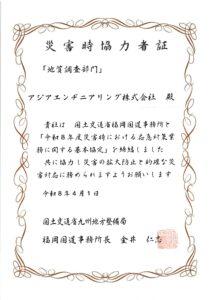 災害時協力者証
「地質調査部門」
アジアエンヂニアリング株式会社 殿
貴社は 国土交通省福岡国道事務所と
「令和8年度災害時における応急対策業
務に関する基本協定」を締結しました
共に協力し災害の拡大防止と的確な災
害対応に務められますようお願いします
令和8年4月1日
国土交通省九州地方整備局
福岡国道事務所長 金井 仁志